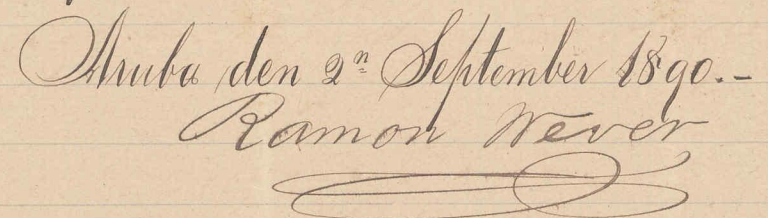 Aruba den 2n September 1890.-
Ramon Wever